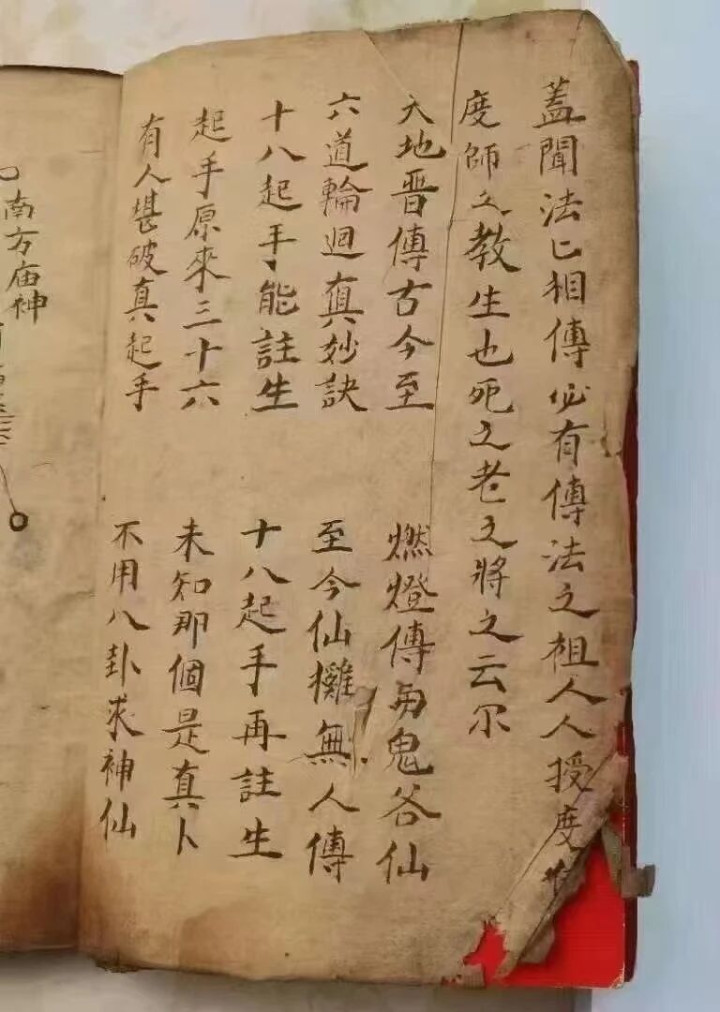 蓋聞法已相傳必有傳法之祖人人授度
度師之教生也死之老之將之云尔
天地晋傳古今至 燃燈傳与鬼谷仙
六道輪迴真妙訣 至今仙攤無人傳
十八起手能註生 十八起手再註生
起手原來三十六 未知那個是真卜
有人堪破真起手 不用八卦求神仙
南方庙神